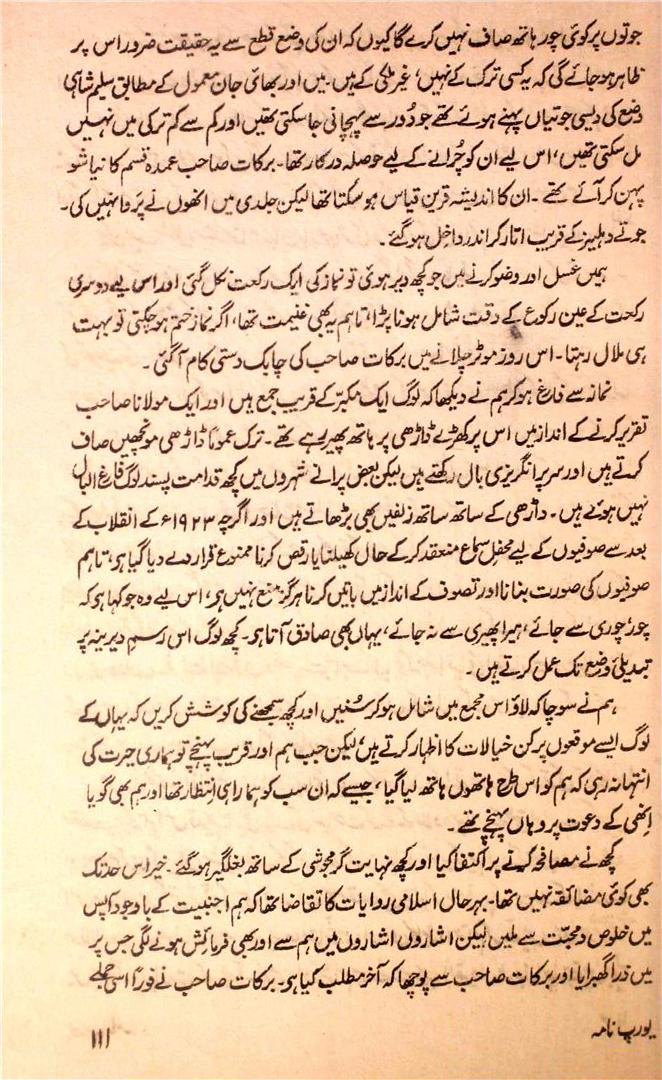 جوتوں پر کوئی چور ہاتھ صاف نہیں کرے گا کیوں کہ ان کی وضع قطع سے یہ حقیقت ضرور اس پر
ظاہر ہو جائے گی کہ یہ کسی ترک کے نہیں، غیر ملکی کے ہیں۔ میں اور بھائی جان معمول کے مطابق سلیم شاہی
وضع کی دیسی جوتیاں پہنے ہوئے تھے جو دُور سے پہچانی جا سکتی تھیں اور کم سے کم ترکی میں نہیں
مل سکتی تھیں، اس لیے ان کو چُرانے کے لیے حوصلہ درکار تھا۔ برکات صاحب عمدہ قسم کا نیا شو
پہن کر آئے تھے۔ ان کا اندیشہ قرین قیاس ہو سکتا تھا لیکن جلدی میں انھوں نے پروا نہیں کی۔
جوتے دہلیز کے قریب اتار کر اندر داخل ہو گئے۔
ہمیں غسل اور وضو کرنے میں جو کچھ دیر ہوئی تو نماز کی ایک رکعت نکل گئی اور اس لیے دوسری
رکعت کے عین رکوع کے وقت شامل ہونا پڑا، تاہم یہ بھی غنیمت تھا، اگر نماز ختم ہو چکتی تو بہت
ہی ملال رہتا۔ اس روز موٹر چلانے میں برکات صاحب کی چابک دستی کام آ گئی۔
نماز سے فارغ ہو کر ہم نے دیکھا کہ لوگ ایک مکبّر کے قریب جمع ہیں اور ایک مولانا صاحب
تقریر کرنے کے انداز میں اس پر کھڑے ڈاڑھی پر ہاتھ پھیر رہے تھے۔ ترک عموماً ڈاڑھی مونچھیں صاف
کرتے ہیں اور سر پر انگریزی بال رکھتے ہیں لیکن بعض پرانے شہروں میں کچھ قدامت پسند لوگ فارغ البال
نہیں ہوئے ہیں۔ داڑھی کے ساتھ ساتھ زلفیں بھی بڑھاتے ہیں اور اگرچہ ۱۹۲۳ء کے انقلاب کے
بعد سے صوفیوں کے لیے محفلِ سماع منعقد کر کے حال کھیلنا یا رقص کرنا ممنوع قرار دے دیا گیا ہی، تاہم
صوفیوں کی صورت بنانا اور تصوف کے انداز میں باتیں کرنا ہرگز منع نہیں ہی، اس لیے وہ جو کہا ہی کہ
چور چوری سے جائے، ہیرا پھیری سے نہ جائے، یہاں بھی صادق آتا ہی۔ کچھ لوگ اس رسمِ دیرینہ پر
تبدیلیِ وضع تک عمل کرتے ہیں۔
ہم نے سوچا کہ لاؤ اس مجمع میں شامل ہو کر سُنیں اور کچھ سمجھنے کی کوشش کریں کہ یہاں کے
لوگ ایسے موقعوں پر کن خیالات کا اظہار کرتے ہیں، لیکن جب ہم اور قریب پہنچے تو ہماری حیرت کی
انتہا نہ رہی کہ ہم کو اس طرح ہاتھوں ہاتھ لیا گیا، جیسے کہ ان سب کو ہمارا ہی انتظار تھا اور ہم بھی گویا
اِنھی کے دعوت پر وہاں پہنچے تھے۔
کچھ نے مصافحہ کرنے پر اکتفا کیا اور کچھ نہایت گرم جوشی کے ساتھ بغلگیر ہو گئے۔ خیر اس حد تک
بھی کوئی مضائقہ نہیں تھا۔ بہرحال اسلامی روایات کا تقاضا تھا کہ ہم اجنبیت کے باوجود آپس
میں خلوص و محبّت سے ملیں لیکن اشاروں اشاروں میں ہم سے اور بھی فرمائش ہونے لگی جس پر
میں ذرا گھبرایا اور برکات صاحب سے پوچھا کہ آخر مطلب کیا ہی۔ برکات صاحب نے فوراً اسی جملے
یورپ نامہ
۱۱۱